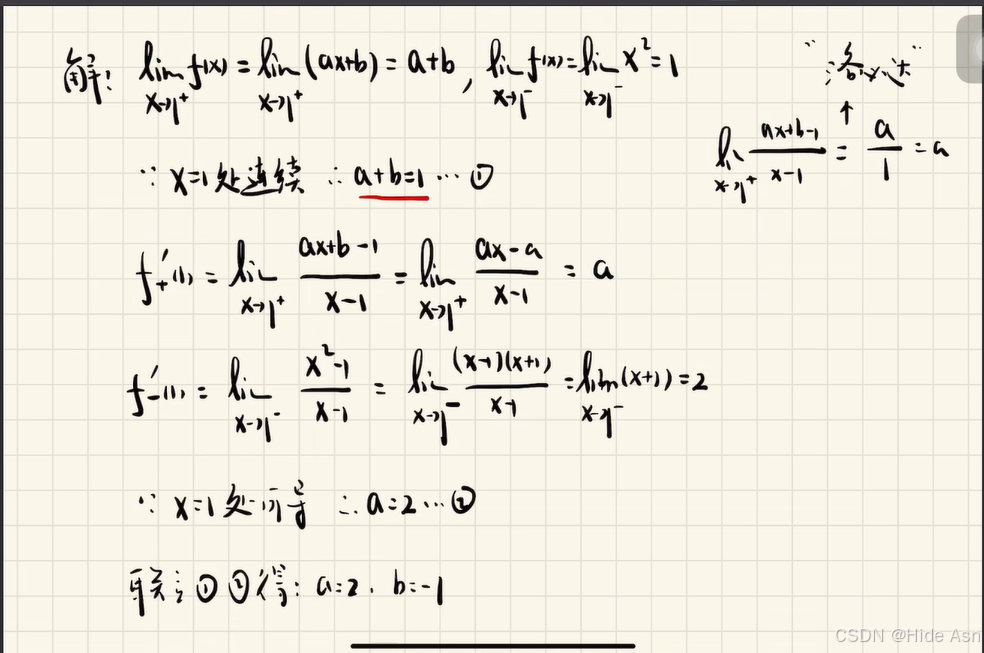 解: lim_{x→1⁺} f(x) = lim_{x→1⁺} (ax+b) = a+b, lim_{x→1⁻} f(x) = lim_{x→1⁻} x² = 1
"洛必达"
↑
lim_{x→1⁺} (ax+b-1)/(x-1) = a/1 = a
∵ x=1处连续 ∴ a+b=1 … ①
f₊′(1) = lim_{x→1⁺} (ax+b-1)/(x-1) = lim_{x→1⁺} (ax-a)/(x-1) = a
f₋′(1) = lim_{x→1⁻} (x²-1)/(x-1) = lim_{x→1⁻} (x-1)(x+1)/(x-1) = lim_{x→1⁻} (x+1) = 2
∵ x=1处可导 ∴ a=2 … ②
联立①②得: a=2, b=-1
CSDN @Hide Asn